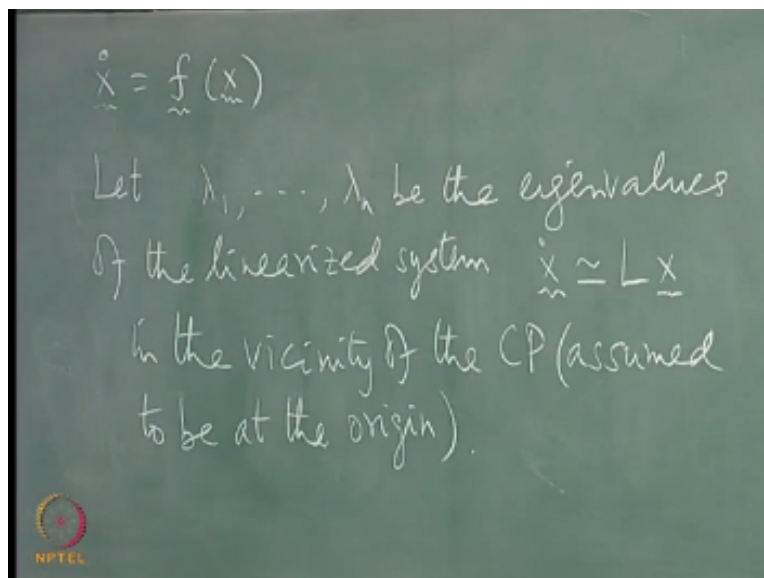 ẋ = f (x)
Let λ₁, ----, λₙ be the eigenvalues
of the linearized system ẋ ≃ L x
in the vicinity of the CP (assumed
to be at the origin).
NPTEL